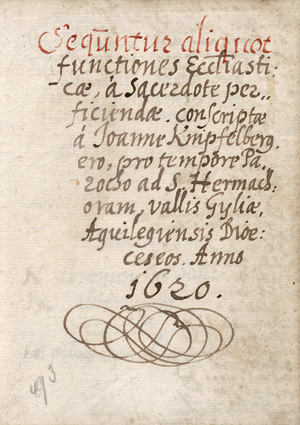 Sequntur aliquot
functiones Eccl̃iasti-
cæ, á Sacerdote per„
ficiendæ. conscriptæ
á Joanne Knipfelberg„
ero, pro tempore Pa„
rocho ad S. Hermach„
oram, vallis Gyliæ,
Aquilegiensis Dioe:
ceseos. Anno
1620.
493